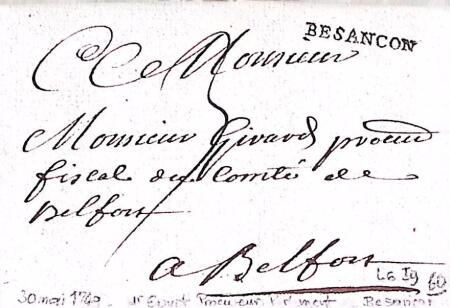 BESANCON
A Monsieur
Monsieur Girard procur
fiscal du Comté de
Belfort
a Belfort
L6 19 60
30 mai 1749 Besançon